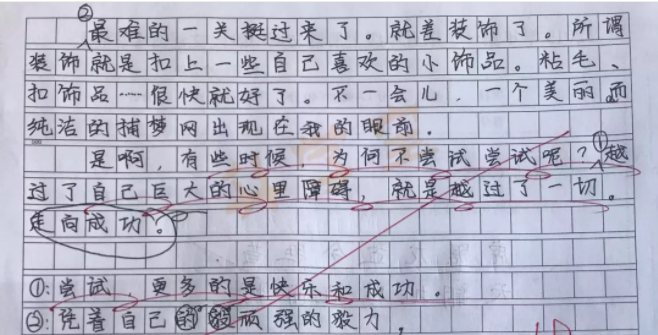 ②
最难的一关挺过来了。就差装饰了。所谓
装饰就是扣上一些自己喜欢的小饰品。粘毛、
扣饰品……很快就好了。不一会儿，一个美丽而
纯洁的捕梦网出现在我的眼前。
是啊，有些时候，为何不尝试尝试呢？①越
过了自己巨大的心里障碍，就是越过了一切。
走向成功。
①:尝试，更多的是快乐和成功。
②:凭着自己的顽强的毅力，